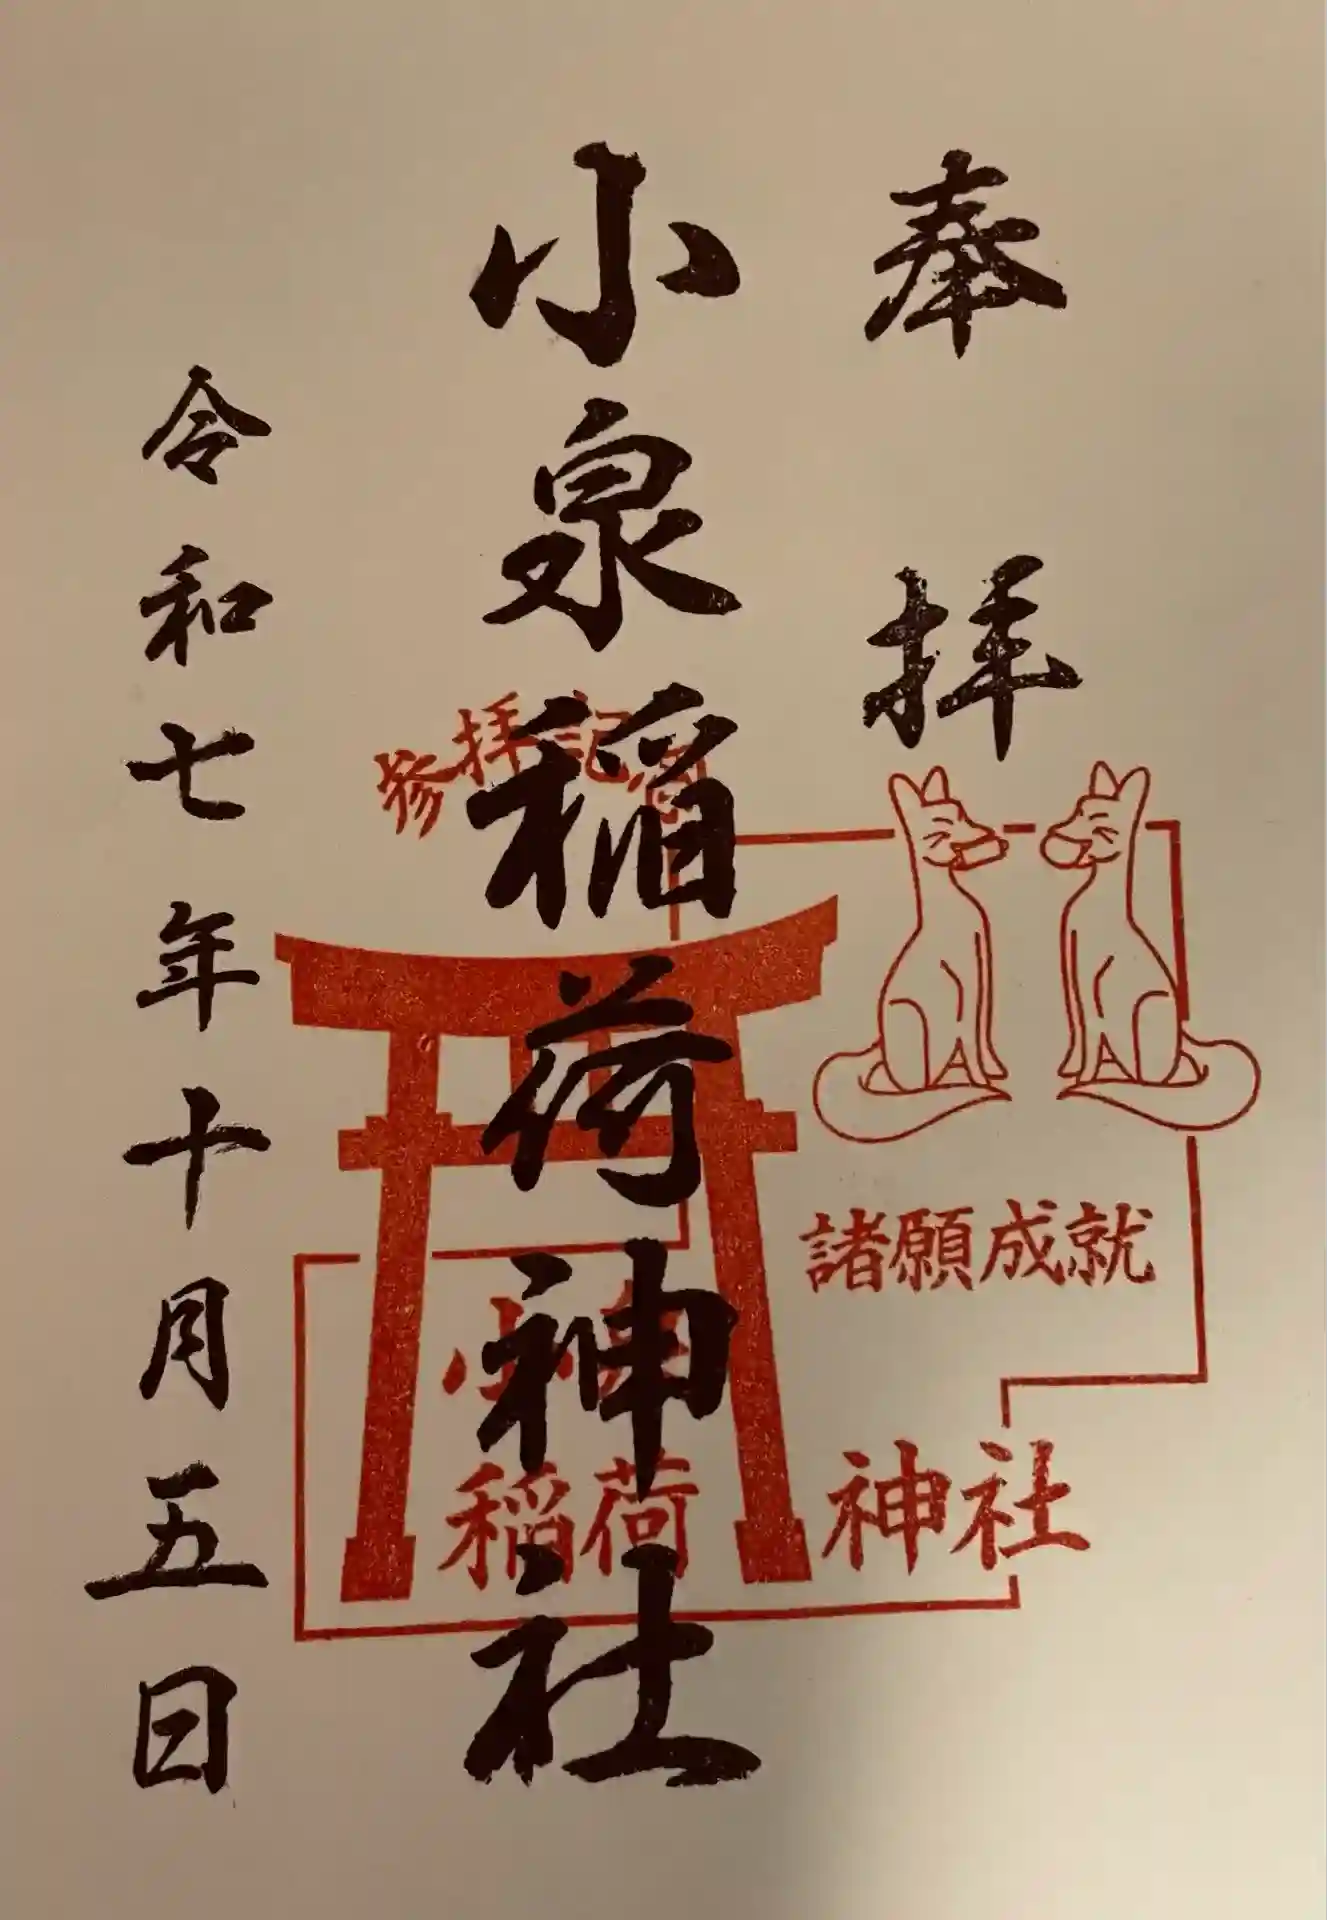 奉拝
小泉稲荷神社
令和七年十月五日
参拝記念
諸願成就
小泉
稲荷神社